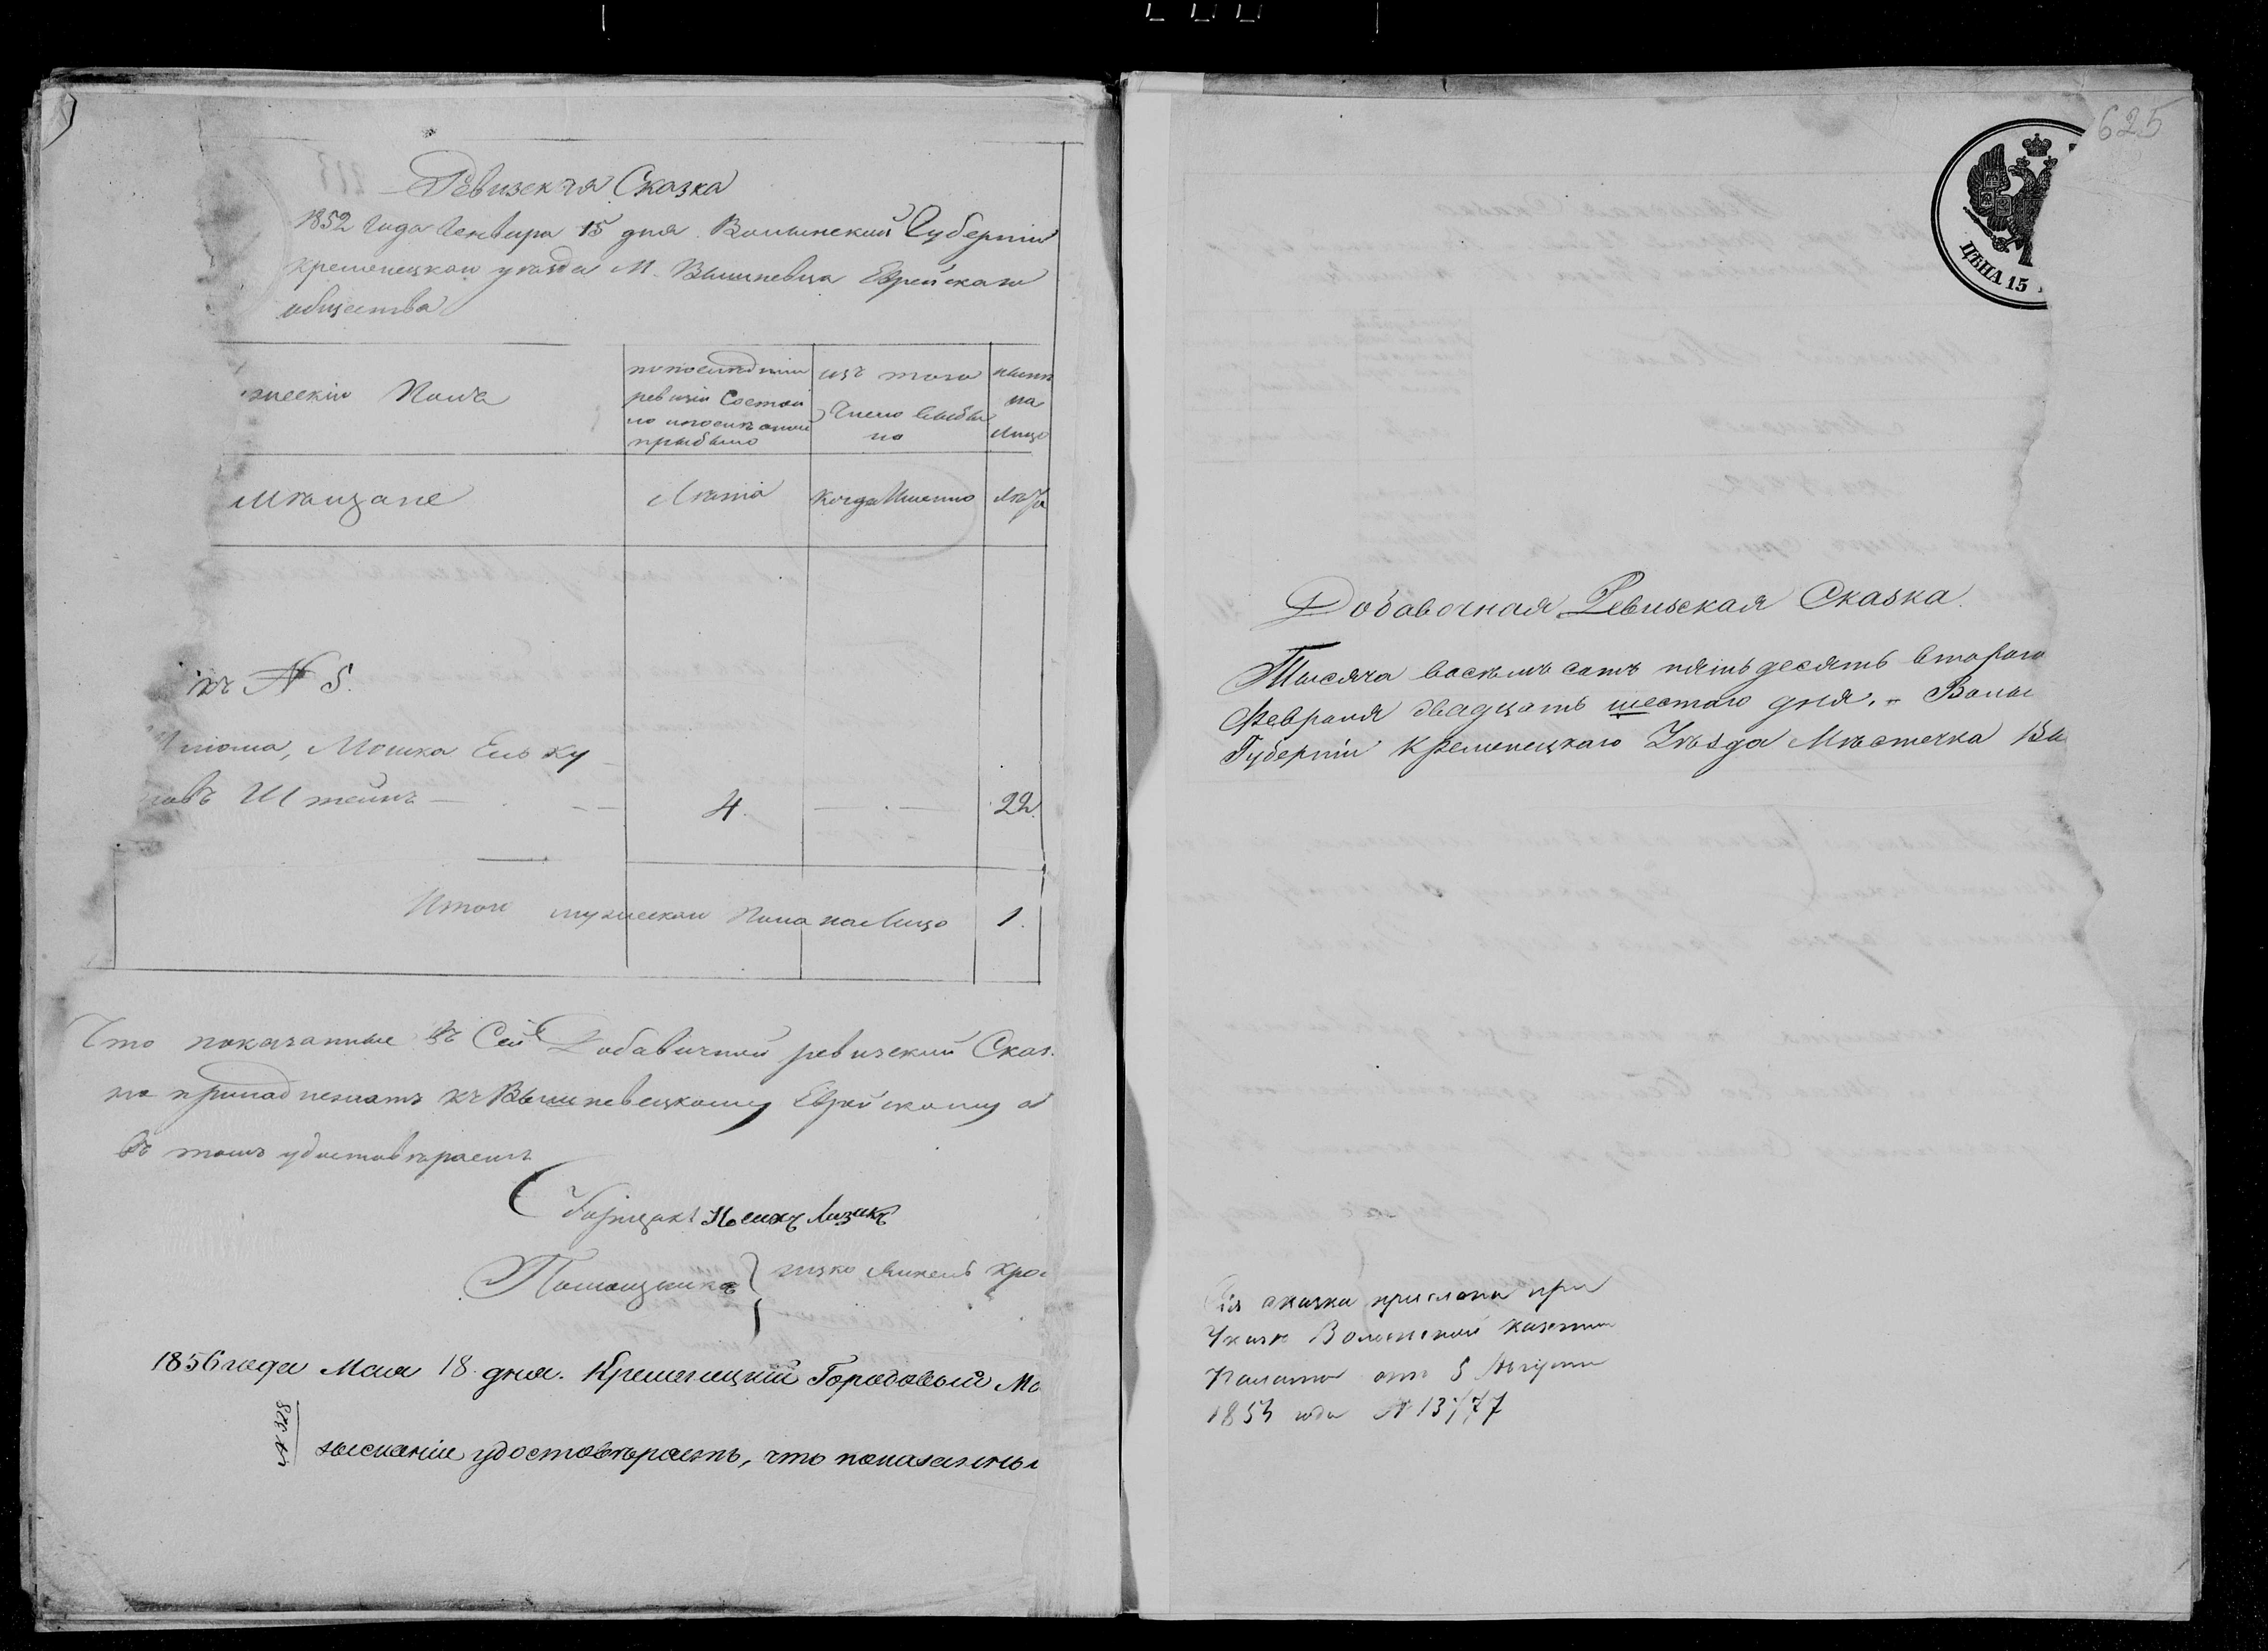 Ревизская Сказка
1852 года Генваря 15 дня Волынской Губерніи
Кременецкаго уѣзда М. Вышневца Еврейскаго
общества
жескій Полъ
по последней
ревизіи Состоя
ло и после оной
прибыло
изъ того
Числа выбы
ло
ныне
на
Лицо
мѣщане
Лѣта
когда Именно
Лѣта
къ № 5.
Мошка Ельку
новъ Штейнъ
4.
22.
Итого мужескаго Пола на Лицо
1.
Что показанные въ Сей Добавичной ревизской Сказ
ке принадлежатъ къ Вышневецкому Еврейскому о
въ томъ удостовѣряемъ
Сборщикъ
Помощники
1856 года Мая 18 дня. Кременецкій Городовый Ма
№ 328
удостовѣряетъ, что показанны
625
ЦѢНА 15
Добавочная Ревизская Сказка.
Тысяча восемь сотъ пятьдесять втораго
Февраля двадцать шестаго дня. Волы
Губерніи Кременецкаго Уѣзда Мѣстечка Вы
Сія сказка прислана при
Указѣ Волынской Казенной
Палаты отъ 5 Августа
1853 года №